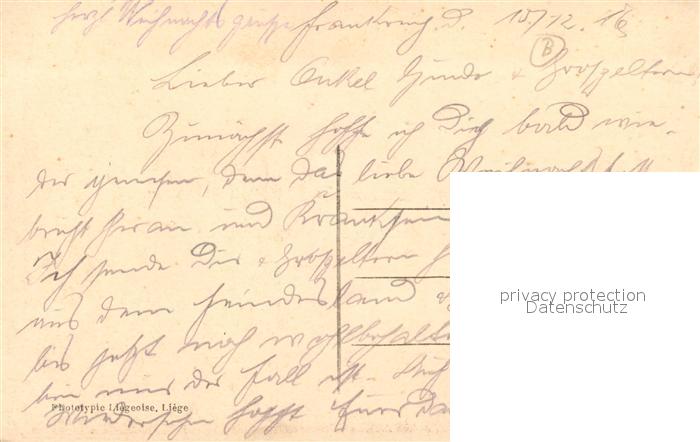 herzl. Weihnachtsgrüsse Frankreich d. 15/12.16
B
Lieber Onkel & Großeltern
Zunächst hoffe ich Dich bald wie-
der genesen, denn das liebe Weihnachtsfest
bricht heran und Kranksein
Ich sende Dir & Großeltern
aus dem Feindesland
bis jetzt noch wohlbehalten
bei mir der Fall ist. Auf
Wiedersehn hofft
Phototypie Liégeoise, Liége
privacy protection
Datenschutz